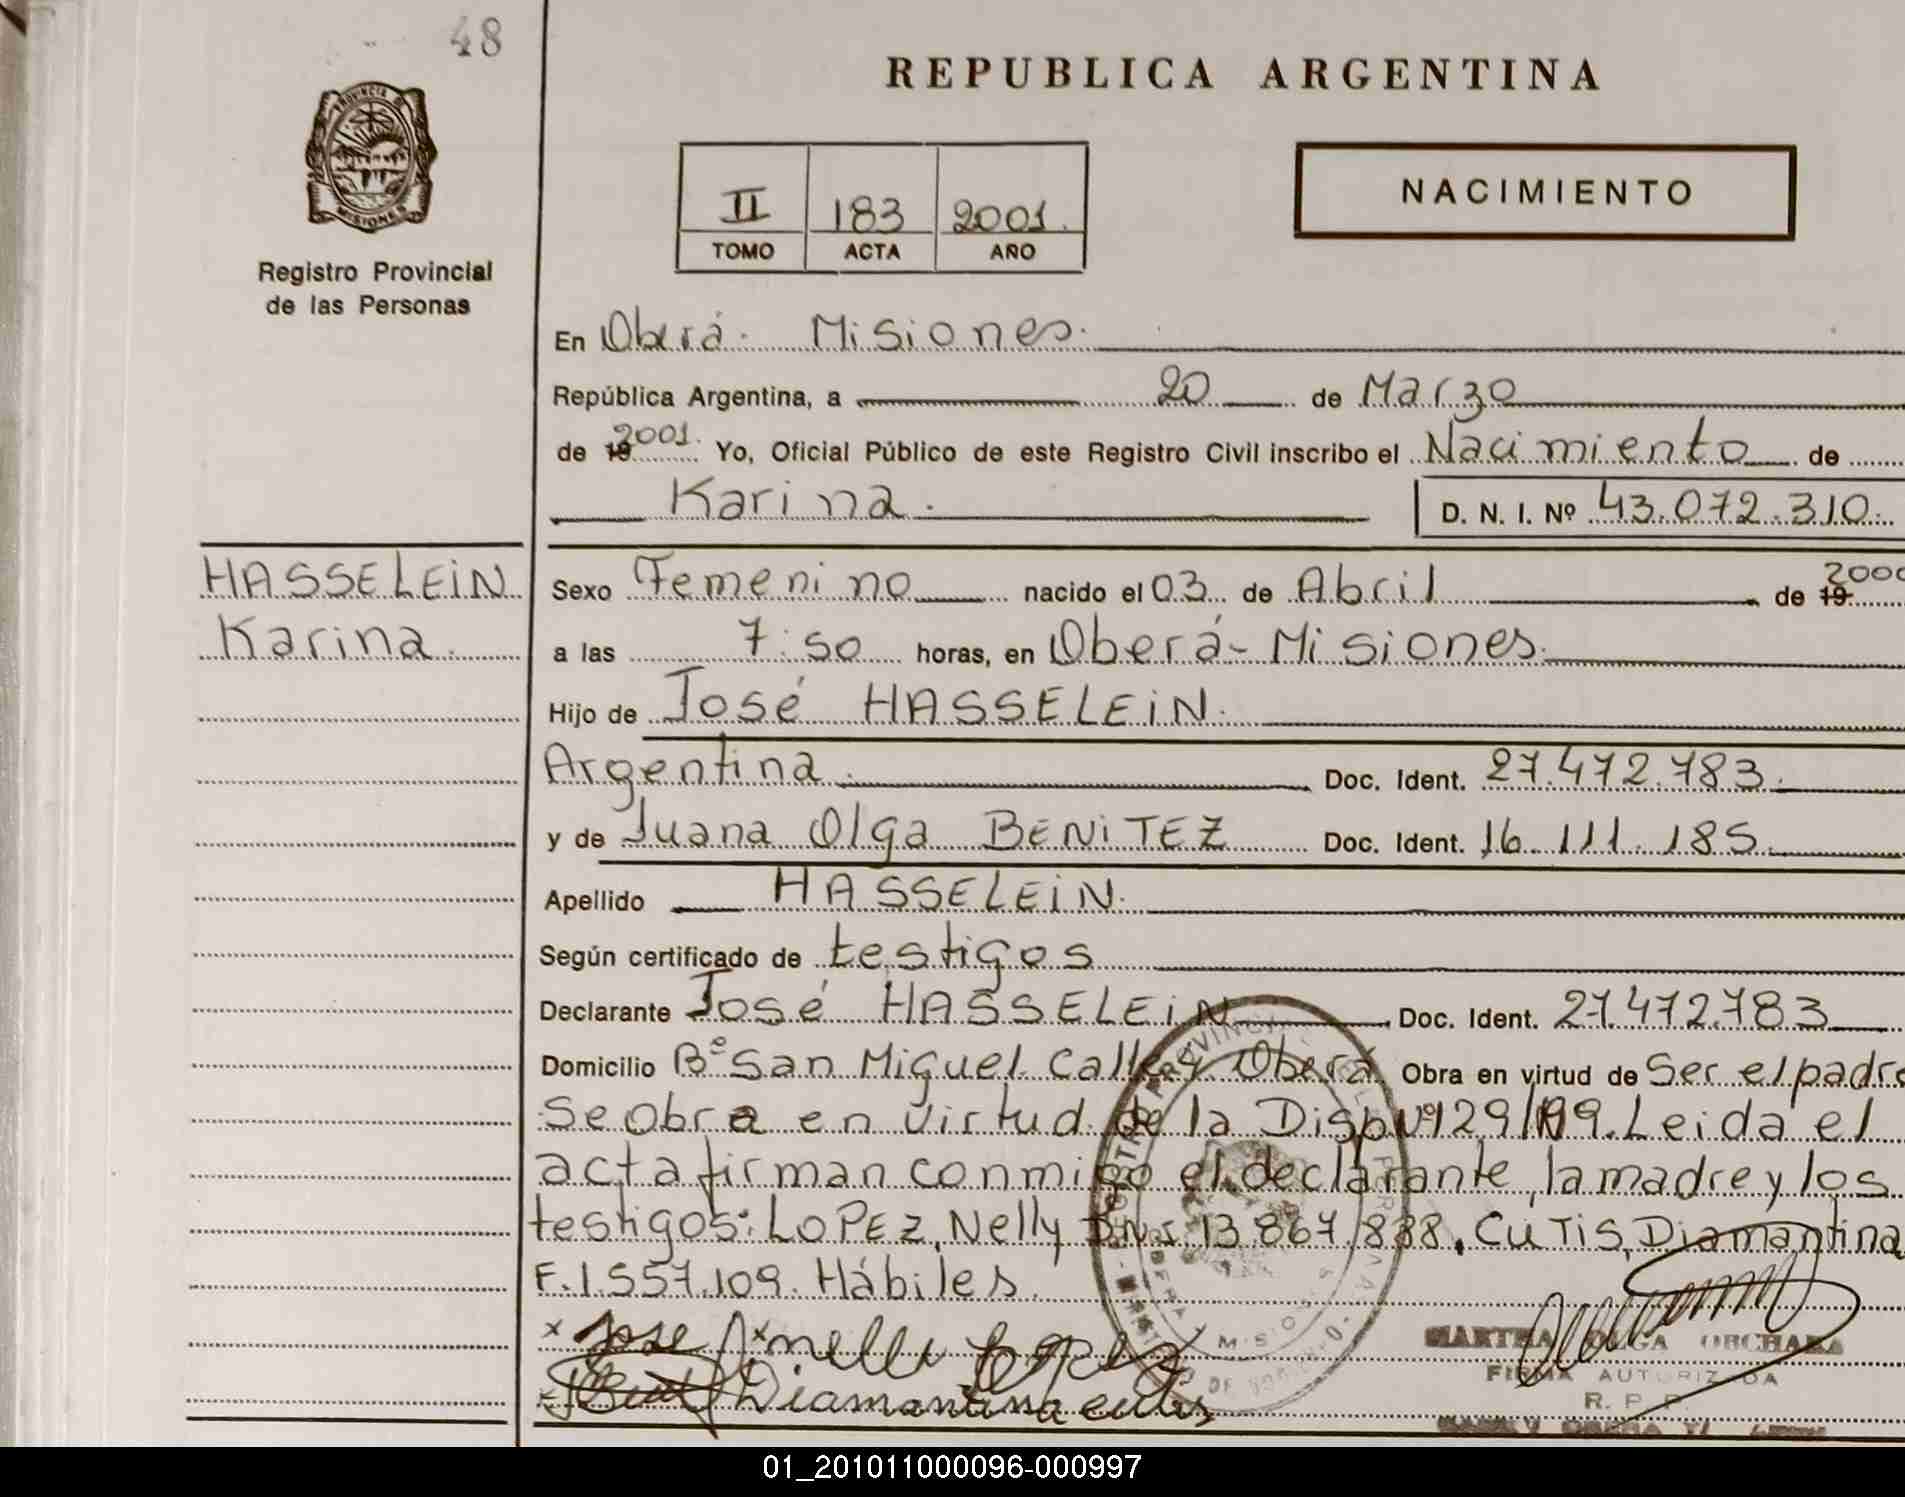 48
REPUBLICA ARGENTINA
PROVINCIA DE
MISIONES
Registro Provincial
de las Personas
II 183 2001.
TOMO ACTA AÑO
NACIMIENTO
En Oberá. Misiones.
República Argentina, a 20 de Marzo
de 19 2001. Yo, Oficial Público de este Registro Civil inscribo el Nacimiento de
Karina. D. N. I. Nº 43.072.310.
HASSELEIN
Karina.
Sexo Femenino nacido el 03 de Abril de 19 2000
a las 7:50 horas, en Oberá-Misiones.
Hijo de José HASSELEIN.
Argentina. Doc. Ident. 27.472.783.
y de Juana Olga BENITEZ Doc. Ident. 16.111.185.
Apellido HASSELEIN.
Según certificado de testigos
Declarante José HASSELEIN Doc. Ident. 27.472.783
Domicilio Bº San Miguel Calle Oberá. Obra en virtud de Ser el padre
Se obra en virtud de la Disp Nº 129/99. Leida el
acta firman conmigo el declarante, la madre y los
testigos: LOPEZ, Nelly D.N.I. 13.867.838. CUTIS, Diamantina
F.1.557.109. Hábiles.
x Jose x nelli Lopez
x Diamantina cutis
MARTHA OLGA ORCHARA
FIRMA AUTORIZADA
R. P. P.
01_201011000096-000997